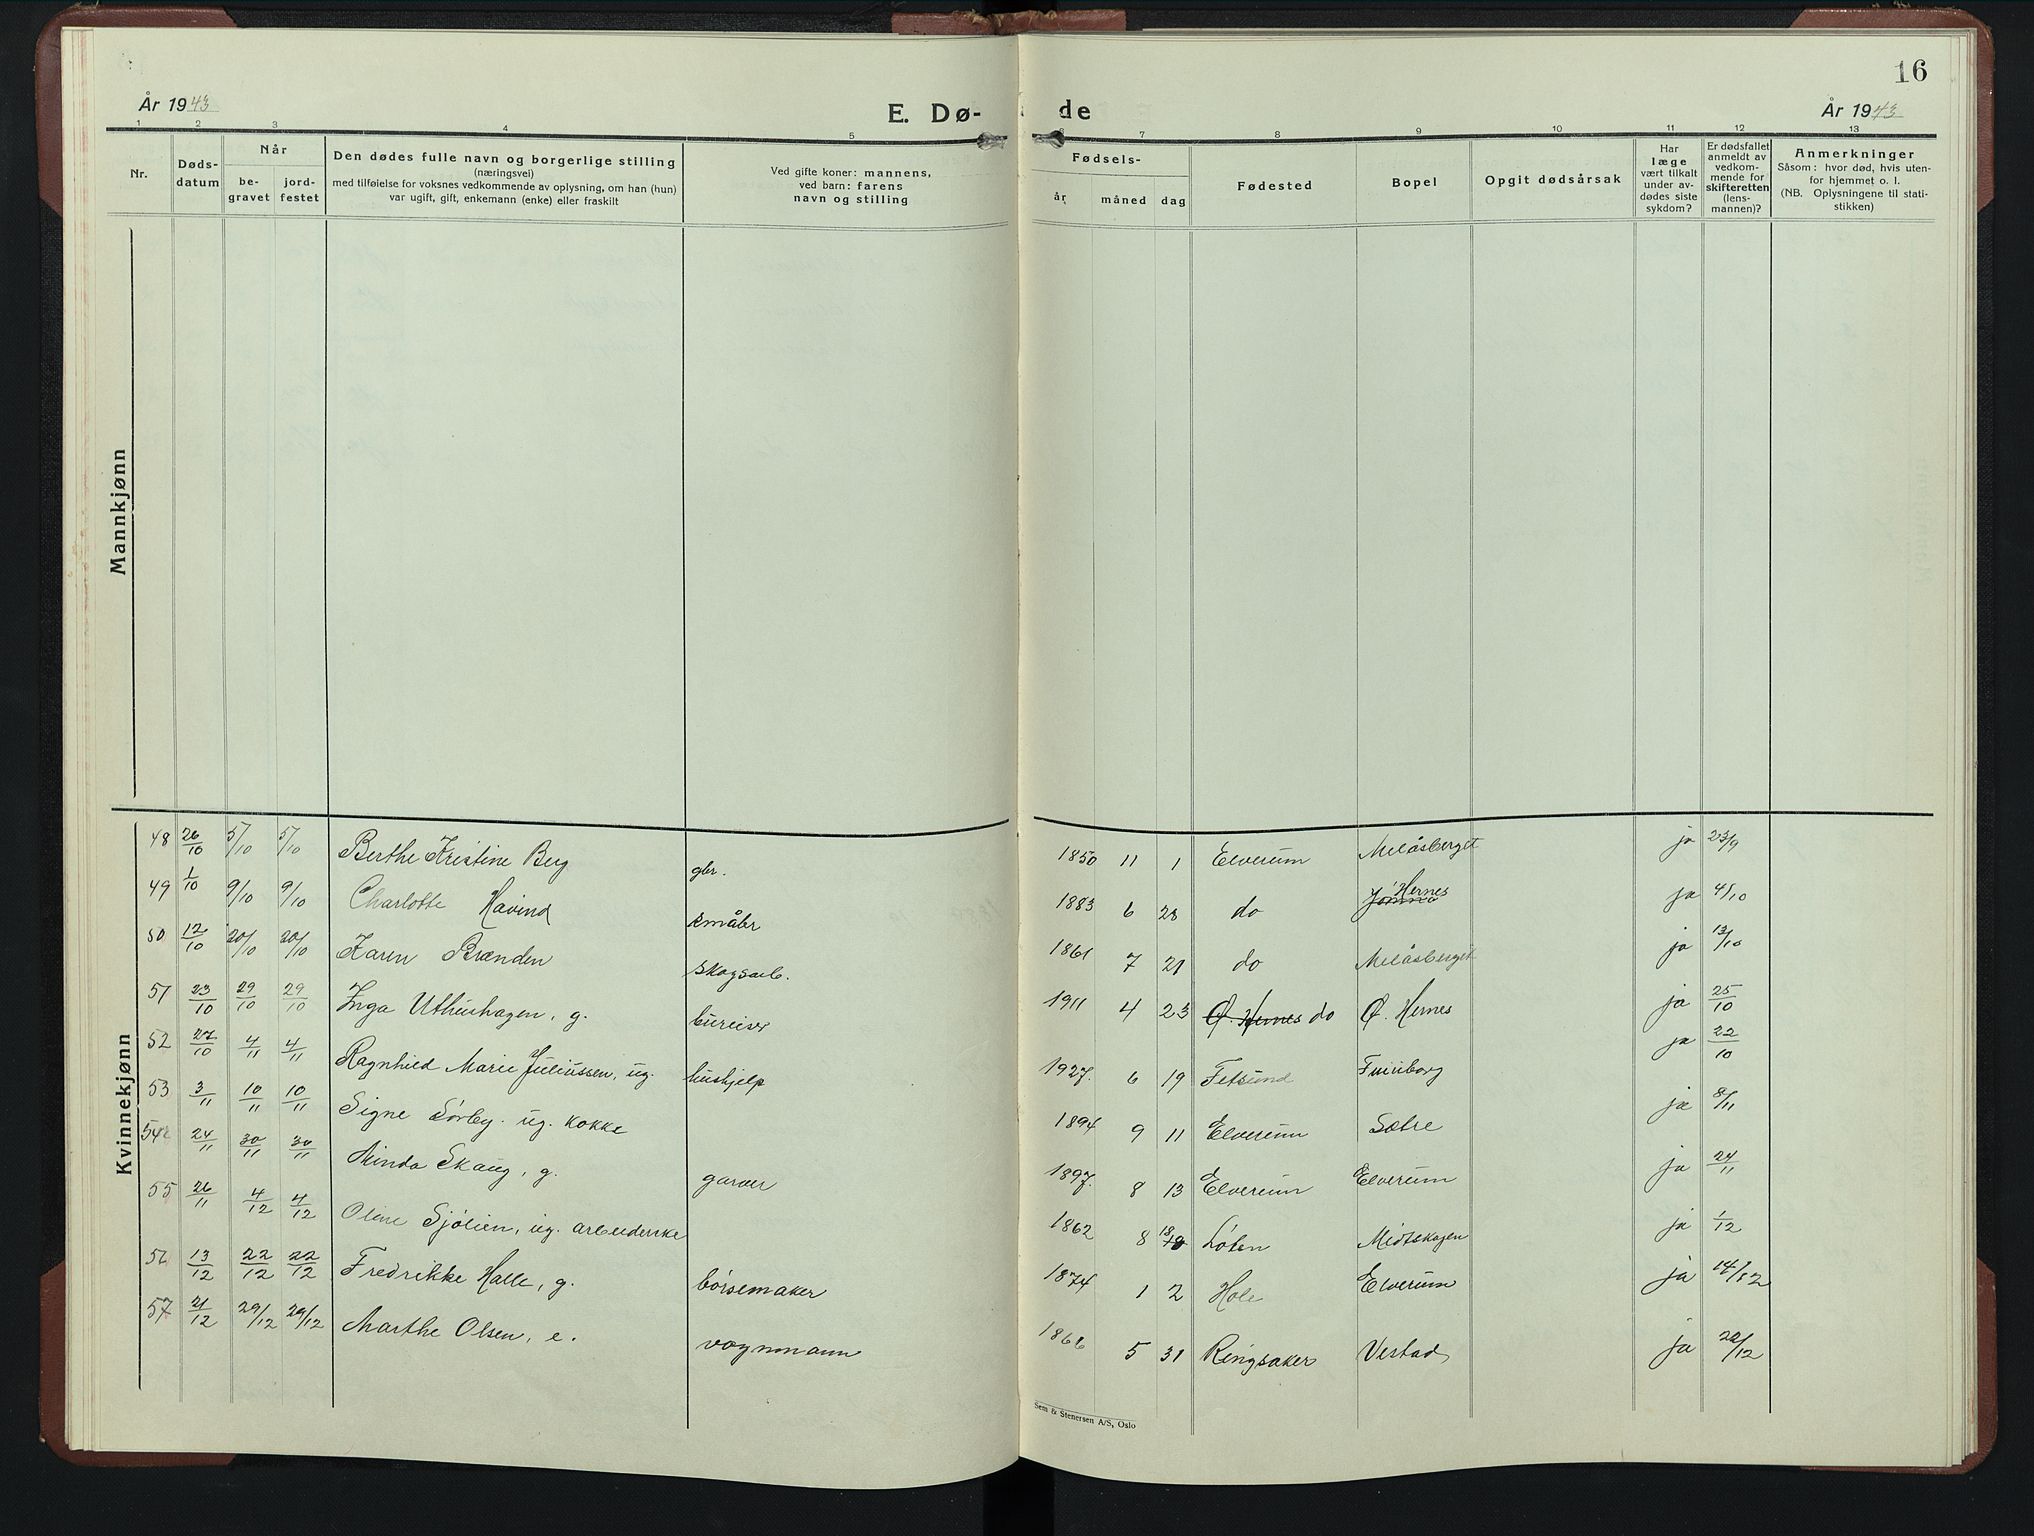 16
År 1943
E. Dø-
de
År 1943
1 2 3 4 5 6 7 8 9 10 11 12 13
Nr.
Døds-
datum
Når
be-
gravet
jord-
festet
Den dødes fulle navn og borgerlige stilling
(næringsvei)
med tilføielse for voksnes vedkommende av oplysning, om han (hun)
var ugift, gift, enkemann (enke) eller fraskilt
Ved gifte koner: mannens,
ved barn: farens
navn og stilling
Fødsels-
år måned dag
Fødested
Bopel
Opgit dødsårsak
Har
læge
vært tilkalt
under av-
dødes siste
sykdom?
Er dødsfallet
anmeldt av
vedkom-
mende for
skifteretten
(lens-
mannen)?
Anmerkninger
Såsom: hvor død, hvis uten-
for hjemmet o. l.
(NB. Oplysningene til stati-
stikken)
Mannkjønn
Kvinnekjønn
48 26/10 5/10 5/10 Berthe Kristine Berg gbr. 1850 11 1 Elverum Melåsberget ja 23/9
49 1/10 9/10 9/10 Charlotte Havind småbr 1883 6 28 do Jømna Hernes ja 4/10
50 12/10 20/10 20/10 Karen Brænden skogsarb. 1861 7 21 do Melåsberget ja 13/10
51 23/10 29/10 29/10 Inga Uthushagen, g. bureiser 1911 4 23 Ø. Hernes do Ø. Hernes ja 25/10
52 27/10 4/11 4/11 Ragnhild Marie Juliussen, ug. hushjelp 1927. 6 19 Fetsund ja 22/10
53 3/11 10/11 10/11 Signe Sørby. ug. kokke 1894 9 11 Elverum Sætre ja 8/11
54 24/11 30/11 30/11 Minda Skaug, g. garver 1897. 8 13 Elverum Elverum ja 24/11
55 26/11 4/12 4/12 Oline Sjølien, ug. arbeiderske 1862 8 18 Løten Midtskogen ja 1/12
56 13/12 22/12 22/12 Fredrikke Halle, g. børsemaker 1874 1 2 Hole Elverum ja 14/12
57 21/12 29/12 29/12 Marthe Olsen, e. vognmann 1866 5 31 Ringsaker Vestad ja 22/12
Sem & Stenersen A/S, Oslo